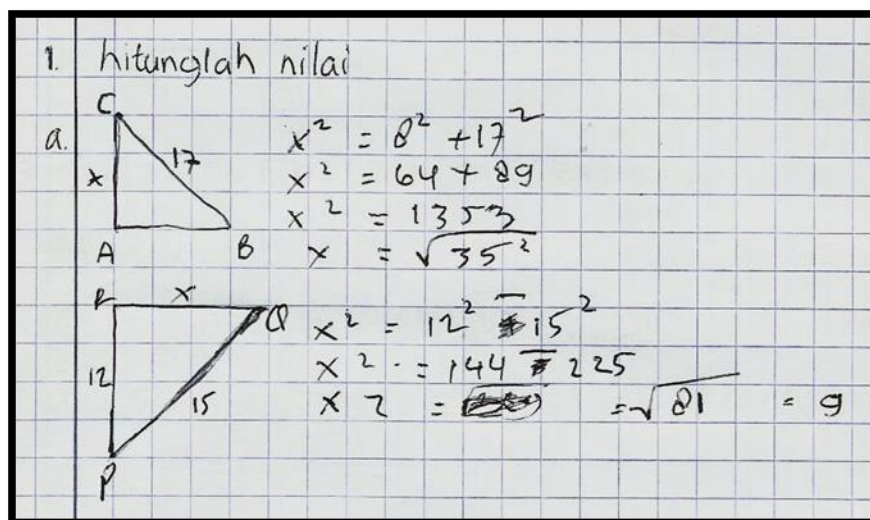 1. hitunglah nilai
a.
C
x
17
A
B
x² = 8² + 17²
x² = 64 + 89
x² = 1353
x = √35²
R
x
Q
12
15
P
x² = 12² - 15²
x² = 144 - 225
x 2 = = √81 = 9